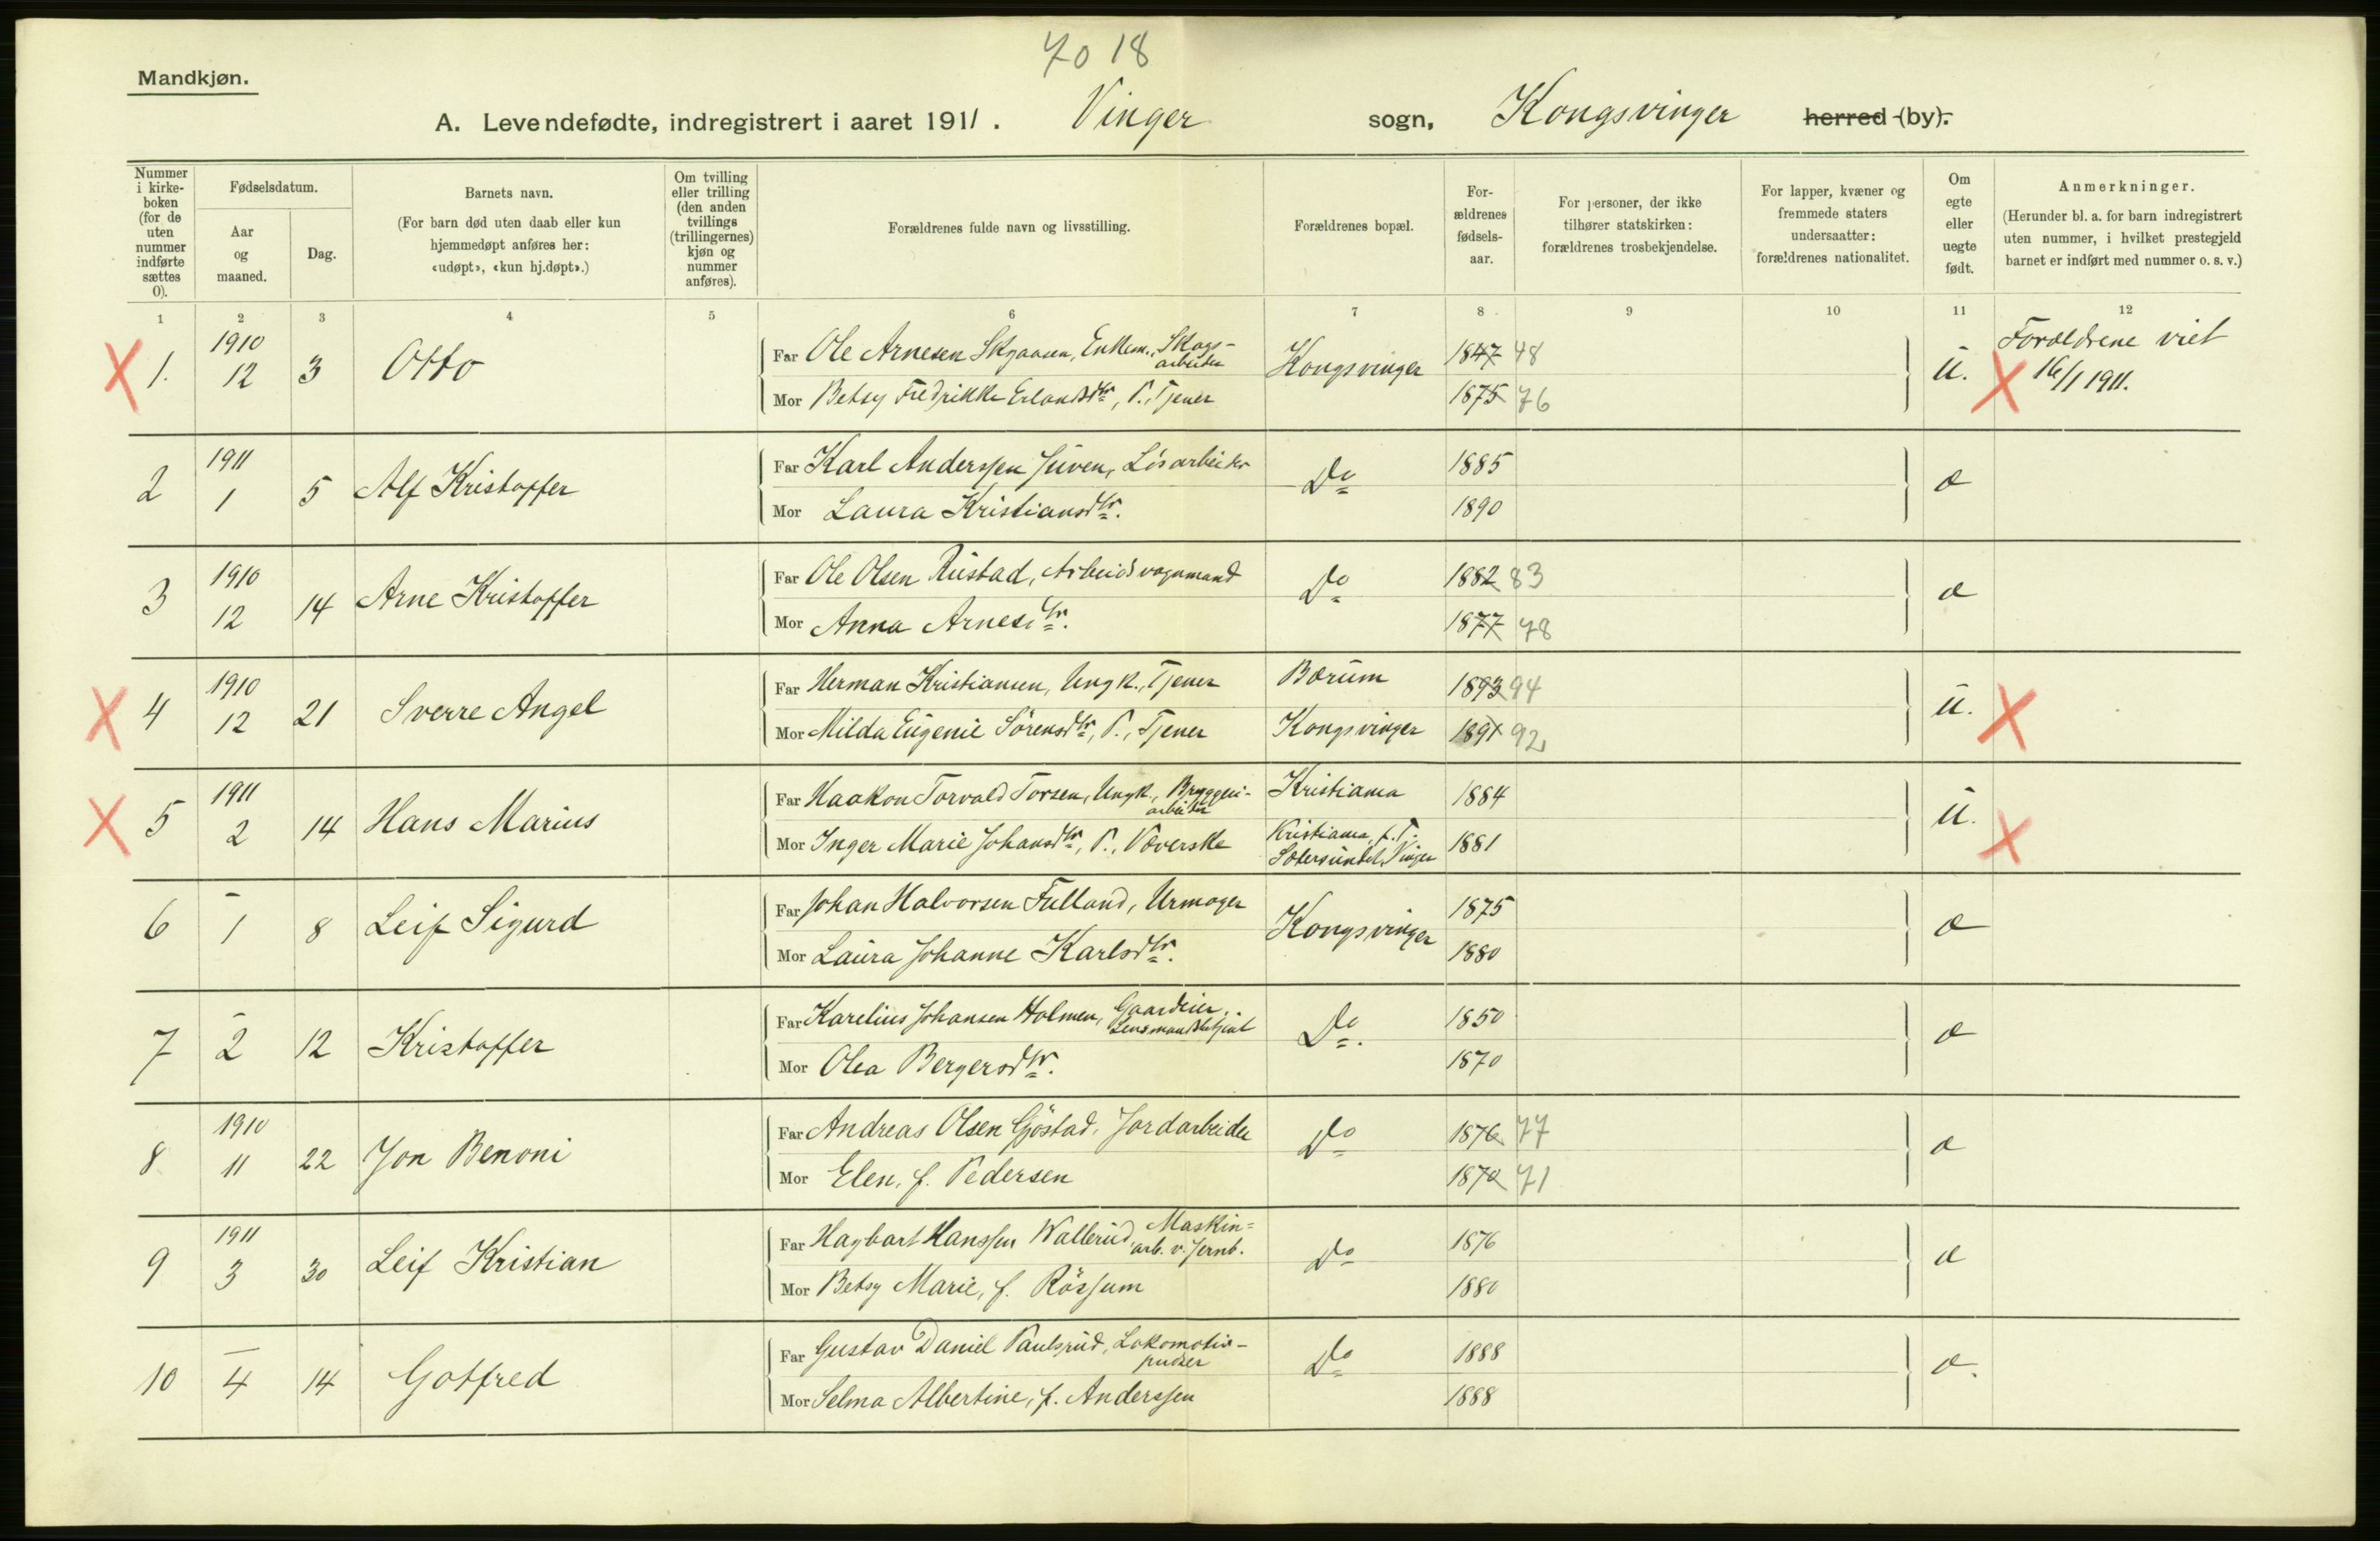 7018
Mandkjøn.
A. Levendefødte, indregistrert i aaret 1911. Vinger sogn, Kongsvinger herred (by).
Nummer i kirke-boken (for de uten nummer indførte sættes 0).
Fødselsdatum.
Aar og maaned.
Dag.
Barnets navn.
(For barn død uten daab eller kun hjemmedøpt anføres her: «udøpt», «kun hj.døpt».)
Om tvilling eller trilling (den anden tvillings (trillingernes) kjøn og nummer anføres).
Forældrenes fulde navn og livsstilling.
Forældrenes bopæl.
For-ældrenes fødsels-aar.
For personer, der ikke tilhører statskirken: forældrenes trosbekjendelse.
For lapper, kvæner og fremmede staters undersaatter: forældrenes nationalitet.
Om egte eller uegte født.
Anmerkninger.
(Herunder bl. a. for barn indregistrert uten nummer, i hvilket prestegjeld barnet er indført med nummer o. s. v.)
1 2 3 4 5 6 7 8 9 10 11 12
X 1. 1910 12 3 Otto
Far Ole Arnesen Skyaasen, Enkem., Skogs-arbeider Kongsvinger 1847 48
Mor Betsy Fredrikke Erlandsdtr, P., Tjener 1875 76
U. X Forældrene viet 16/1 1911.
2 1911 1 5 Alf Kristoffer
Far Karl Anderssen Juven, Løsarbeider Do 1885
Mor Laura Kristiansdtr. 1890
æ
3 1910 12 14 Arne Kristoffer
Far Ole Olsen Rustad, Arbeidsvognmand Do 1882 83
Mor Anna Arnesdtr. 1877 78
æ
X 4 1910 12 21 Sverre Angel
Far Herman Kristiansen, Ungk., Tjener Bærum 1893 94
Mor Milda Eugenie Sørensdtr, P., Tjener Kongsvinger 1891 92
U. X
X 5 1911 2 14 Hans Marius
Far Haakon Torvald Torsen, Ungk., Bryggeri-arbeider Kristiania 1884
Mor Inger Marie Johansdtr, P., Væverske Kristiania, p. T. Vinger 1881
U. X
6 – 1 8 Leif Sigurd
Far Johan Halvorsen Fulland, Urmager Kongsvinger 1875
Mor Laura Johanne Karlsdtr. 1880
æ
7 – 2 12 Kristoffer
Far Karelius Johansen Holmen, Gaardeier, Lensmandsbetjent Do. 1850
Mor Olea Bergersdtr. 1870
æ
8 1910 11 22 Jon Benoni
Far Andreas Olsen Gjøstad, Jordarbeider Do 1876 77
Mor Elen, f. Pedersen 1870 71
æ
9 1911 3 30 Leif Kristian
Far Hagbart Hanssen Wallerud, Maskin=arb. v. Jernb. Do 1876
Mor Betsy Marie, f. Røssum 1880
æ
10 – 4 14 Gotfred
Far Gustav Daniel Paulsrud, Lokomotiv-pudser Do 1888
Mor Selma Albertine, f. Anderssen 1888
æ.